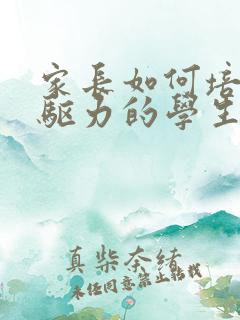 家長如何培
驅力的學生
真柴奈緒
未经同意禁止转载